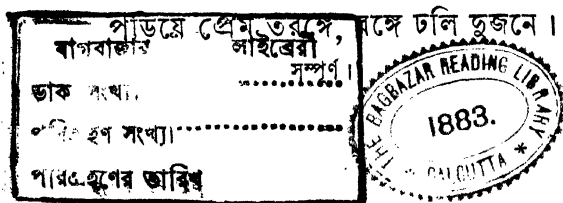 পড়িয়ে প্রেম তরঙ্গে, রঙ্গে ঢলি দুজনে।
সম্পূর্ণ।
বাগবাজার লাইব্রেরী
ডাক সংখ্যা
পরিগ্রহণ সংখ্যা
পরিগ্রহণের তারিখ
THE BAGBAZAR READING LIBRARY
1883.
* CALCUTTA *